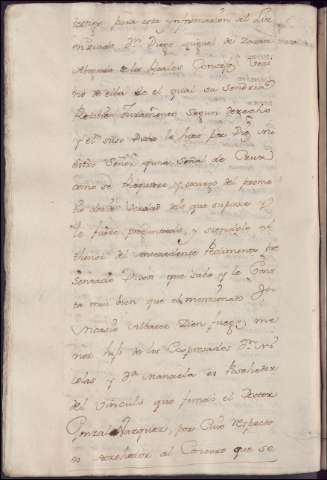 testigo para esta ynformacion al Lizen
enziado Dn Diego
Abogado de los Reales Consejos Vezi
no de ella de el qual su Señoria
Rezibio Juramento segun derecho
y el suso Dicho lo hizo por Dios nu
estro Señor y una señal de Cruz
como se Requiere, y
verdad de lo que supiere y
le fuere preguntado, y siendolo al
thenor del antezedente Pedimento pre
sentado Dixo: que sabe y le Cons
ta mui bien que el menzionado Jn
Nicasio me
nor hijo de los Expresados Dn Ni
colas y Da Manuela es Posehedor
del Vinculo que fundo el Doctor
Gonzalo Vazquez, por Cuio Respecto
es acrehedor al Concurso que se